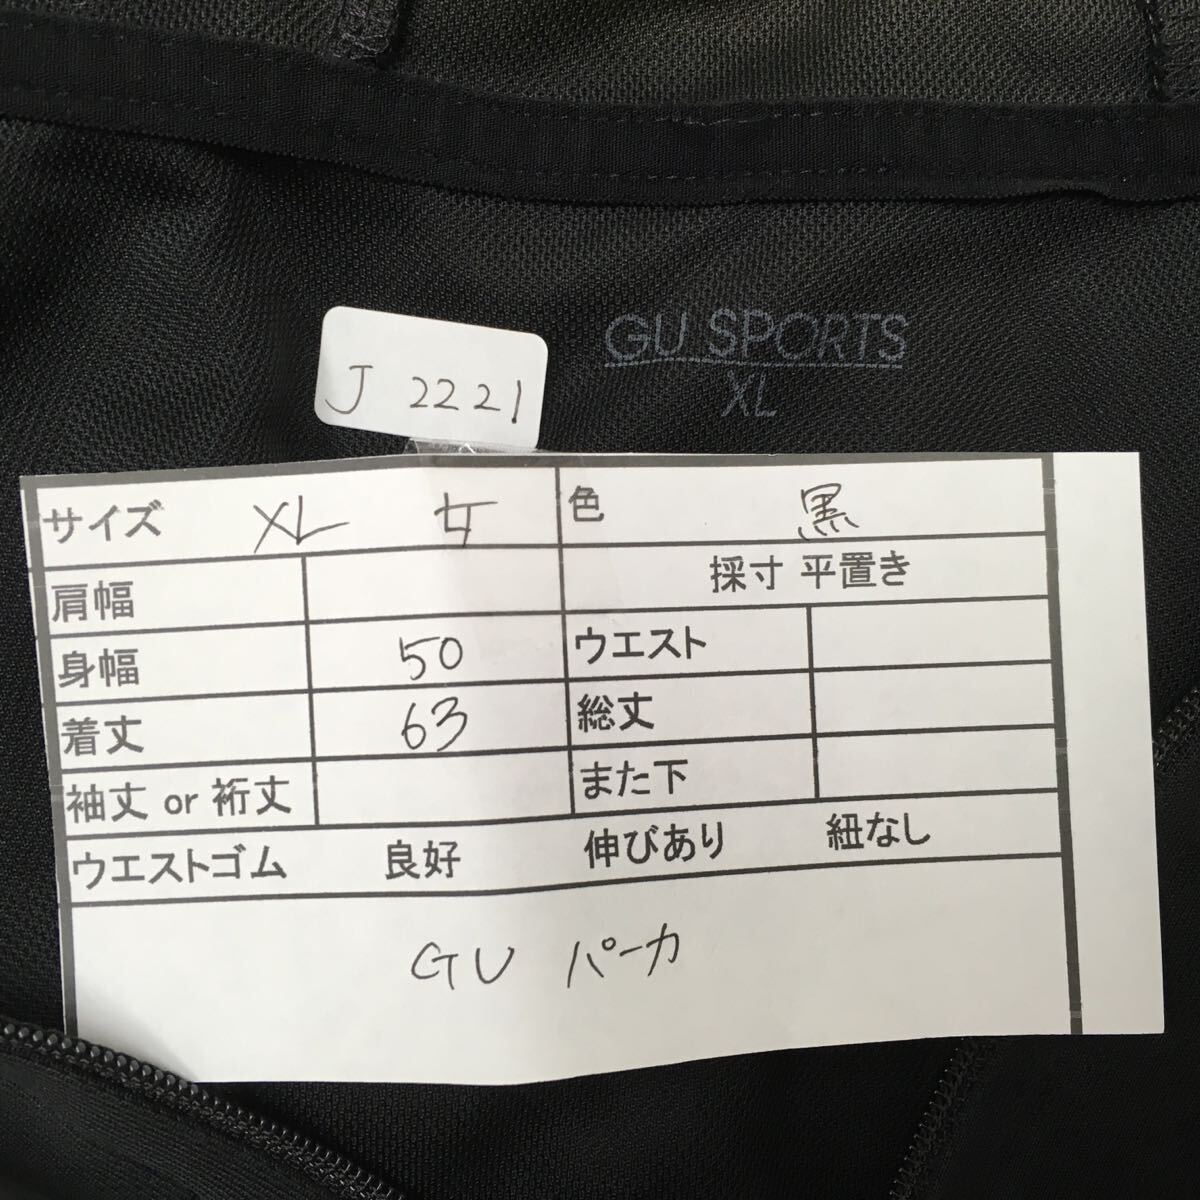 GU SPORTS
XL
J 2221
サイズ XL 女 色 黒
肩幅 採寸 平置き
身幅 50 ウエスト
着丈 63 総丈
袖丈 or 裄丈 また下
ウエストゴム 良好 伸びあり 紐なし
GU パーカ